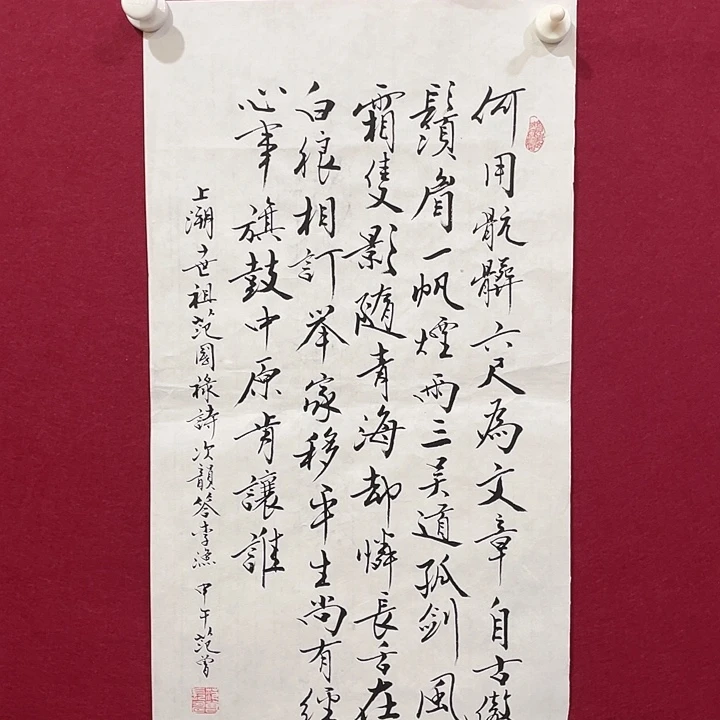 何用骯髒六尺為文章自古傲
鬚眉一帆煙雨三吴道孤剑風
霜隻影随青海却憐長舌在
白狼相訂举家移平生尚有經
心事旗鼓中原肯讓誰
上溯十世祖范國祿詩次韻答李漁甲午范曾